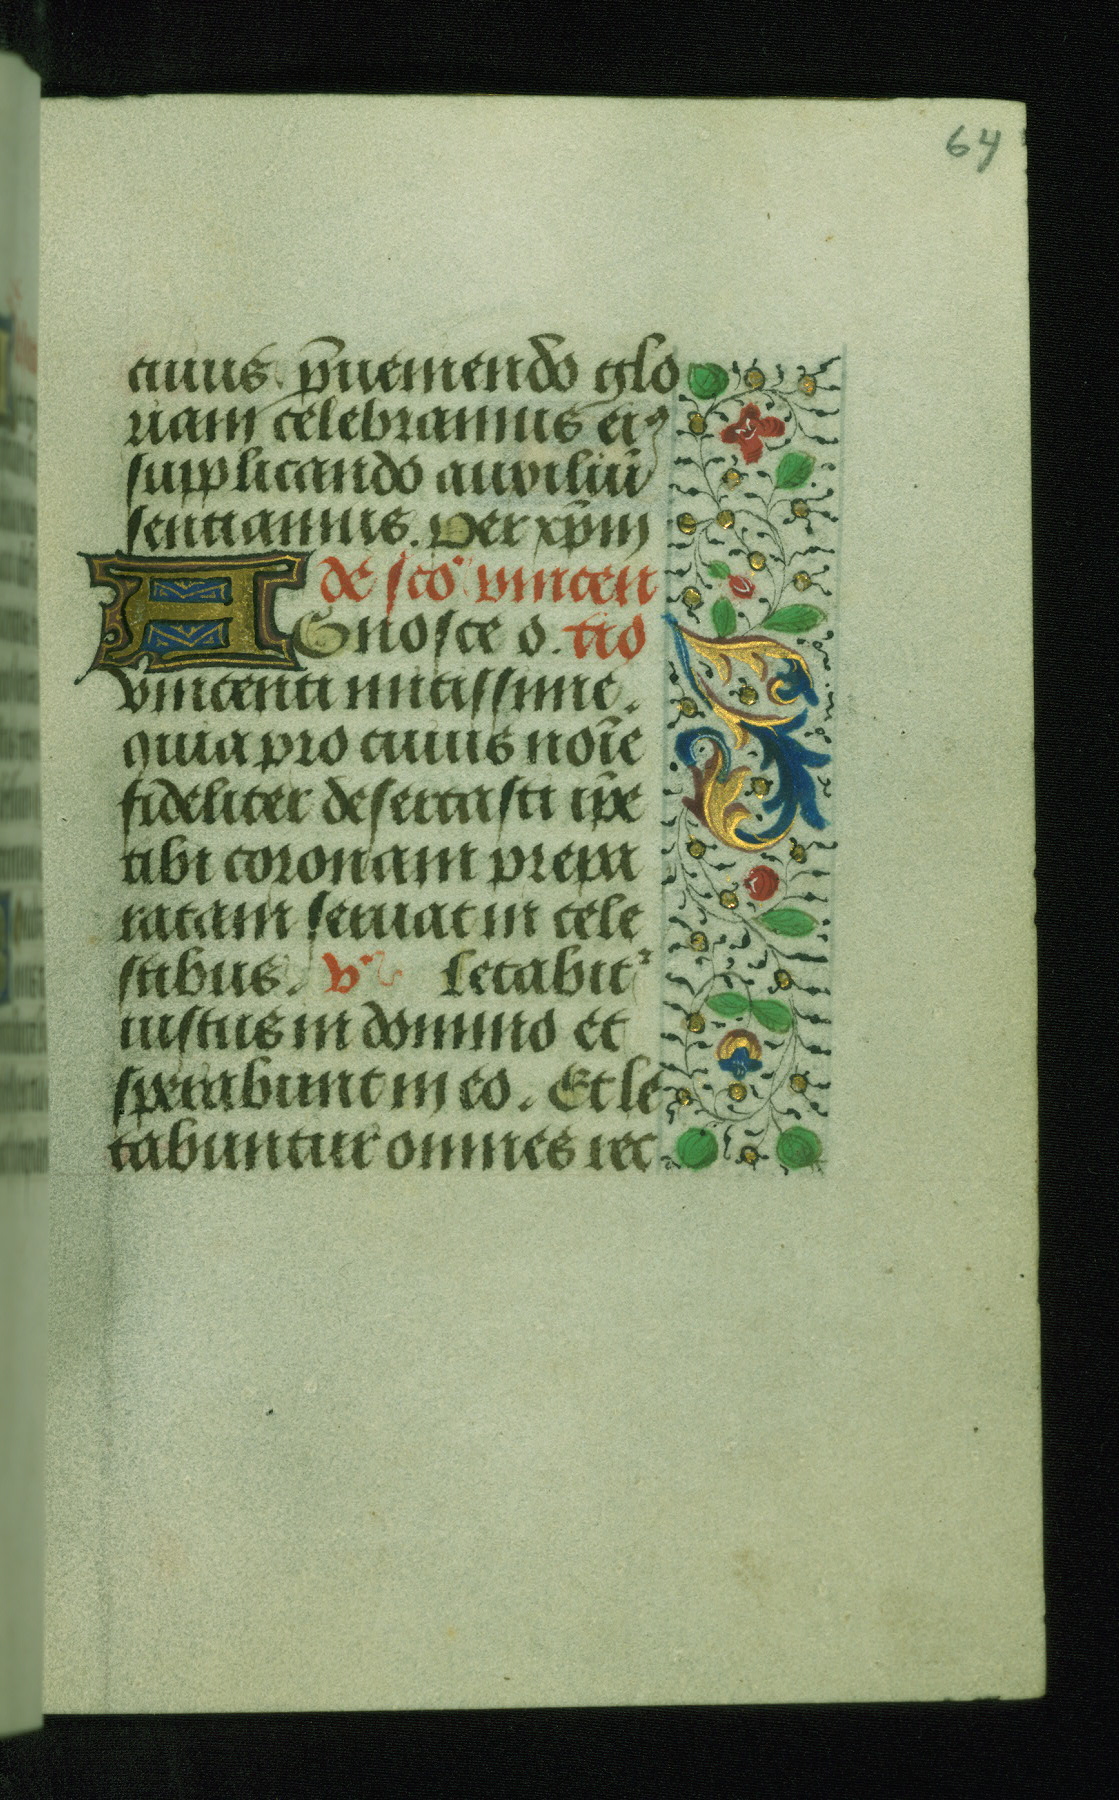 64
cuius p̄ueniendo glo
riam celebramus eiꝰ
supplicando auxiliū
sentiamus. Per xp̄m
de sc̄o vincen
AGnosce o. tio
vincenti mitissime.
quia pro cuius noīe
fideliter desertasti ip̄e
tibi coronam prepa
ratam seruat in cele
stibus. v̓ Letabit᷑
iustus in domino et
sperabunt in eo. Et le
tabuntur omnes rec